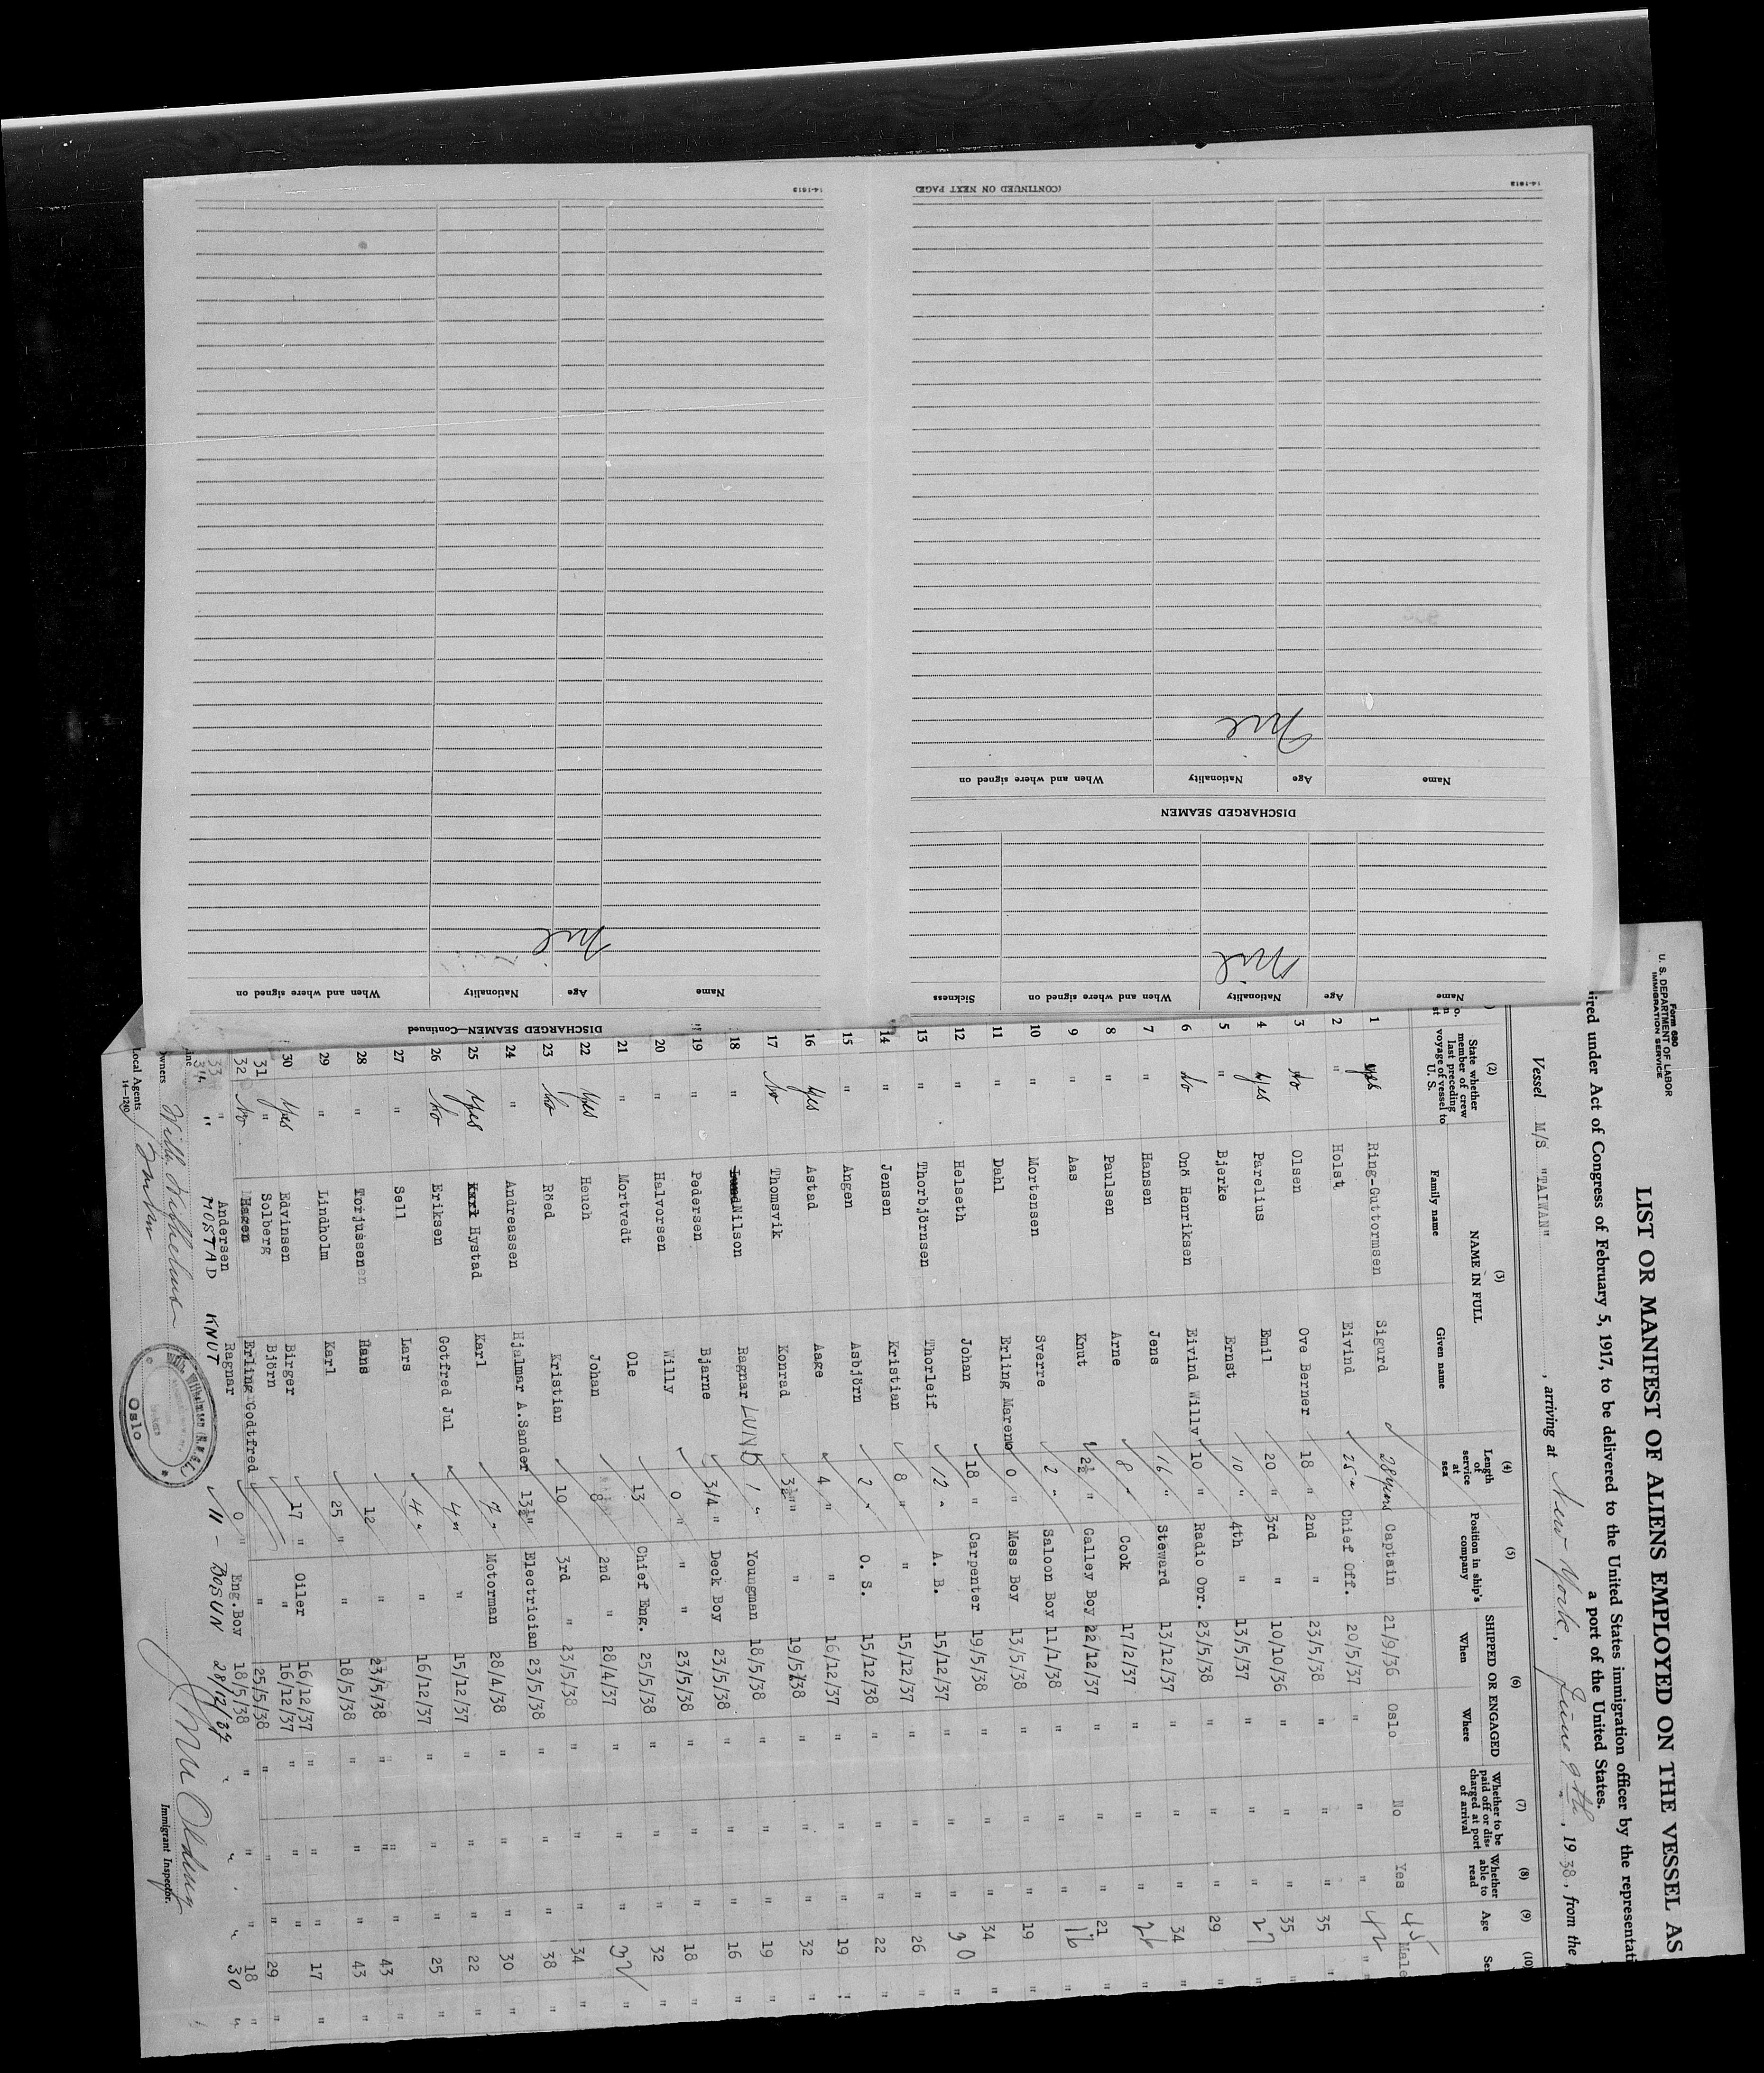 Form 680
U. S. DEPARTMENT OF LABOR
IMMIGRATION SERVICE
LIST OR MANIFEST OF ALIENS EMPLOYED ON THE VESSEL AS
ired under Act of Congress of February 5, 1917, to be delivered to the United States immigration officer by the representati
a port of the United States.
Vessel M/S "TAIWAN" , arriving at New York, June 9th, 1938, from the
(2) (3) (4) (5) (6) (7) (8) (9) (10)
State whether member of crew last preceding voyage of vessel to U. S. NAME IN FULL Family name Given name Length of service at sea Position in ship's company SHIPPED OR ENGAGED When Where Whether to be paid off or discharged at port of arrival Whether able to read Age Sex
1 yes Ring-Guttormsen Sigurd 28 years Captain 21/9/36 Oslo No Yes 45 Male
2 " Holst Eivind 25 " Chief Off. 20/5/37 " " " 42 "
3 No Olsen Ove Berner 18 " 2nd " 23/5/38 " " " 35 "
4 Yes Parelius Emil 20 " 3rd " 10/10/36 " " " 35 "
5 " Bjerke Ernst 10 " 4th " 13/5/37 " " " 27 "
6 No Onö Henriksen Eivind Willy 10 " Radio Opr. 23/5/38 " " " 29 "
7 " Hansen Jens 16 " Steward 13/12/37 " " " 34 "
8 " Paulsen Arne 8 " Cook 17/2/37 " " " 26 "
9 " Aas Knut 2½ " Galley Boy 22/12/37 " " " 21 "
10 " Mortensen Sverre 2 " Saloon Boy 11/1/38 " " " 16 "
11 " Dahl Erling Mareno 0 " Mess Boy 13/5/38 " " " 19 "
12 " Helseth Johan 18 " Carpenter 19/5/38 " " " 34 "
13 " Thorbjörnsen Thorleif 12 " A. B. 15/12/37 " " " 30 "
14 " Jensen Kristian 8 " " 15/12/37 " " " 26 "
15 " Angen Asbjörn 2 " O. S. 15/12/38 " " " 22 "
16 Yes Astad Aage 4 " " 16/12/37 " " " 19 "
17 No Thomsvik Konrad 3½ " " 19/5/38 " " " 32 "
18 " Nilson Ragnar LUND 1 " Youngman 18/5/38 " " " 19 "
19 " Pedersen Bjarne 3/4 " Deck Boy 23/5/38 " " " 16 "
20 " Halvorsen Willy 0 " " 23/5/38 " " " 18 "
21 " Mortvedt Ole 13 Chief Eng. 25/5/38 " " " 32 "
22 Yes Heuch Johan 8 2nd " 28/4/37 " " " 32 "
23 No Röed Kristian 10 3rd " 23/5/38 " " " 34 "
24 " Andreassen Hjalmar A.Sander 13½ " Electrician 23/5/38 " " " 38 "
25 Yes Hystad Karl 7 " Motorman 28/4/38 " " " 30 "
26 No Eriksen Gotfred Jul 4 " " 15/12/37 " " " 22 "
27 " Sell Lars 4 " " 16/12/37 " " " 25 "
28 " Torjussen Hans 12 " 23/5/38 " " " 43 "
29 " Lindholm Karl 25 " " 18/5/38 " " " 43 "
30 Yes Edvinsen Birger 17 " Oiler 16/12/37 " " " 17 "
31 " Solberg Björn " 16/12/37 " " "
32 No Hagen Erling Godtfred " 25/5/38 " " " 29 "
33 " Andersen Ragnar 0 " Eng.Boy 18/5/38 " " " 18 "
34 " MOSTAD KNUT 11 - BOSUN 28/12/37 " " " 30 "
Owners Wilh. Wilhelmsen
Local Agents
14—1240
Oslo
Immigrant Inspector.
Name Age Nationality When and where signed on Sickness
Nil
DISCHARGED SEAMEN
Name Age Nationality When and where signed on
Nil
14-1613
(CONTINUED ON NEXT PAGE)
DISCHARGED SEAMEN—Continued
Name Age Nationality When and where signed on
Nil
14-1613